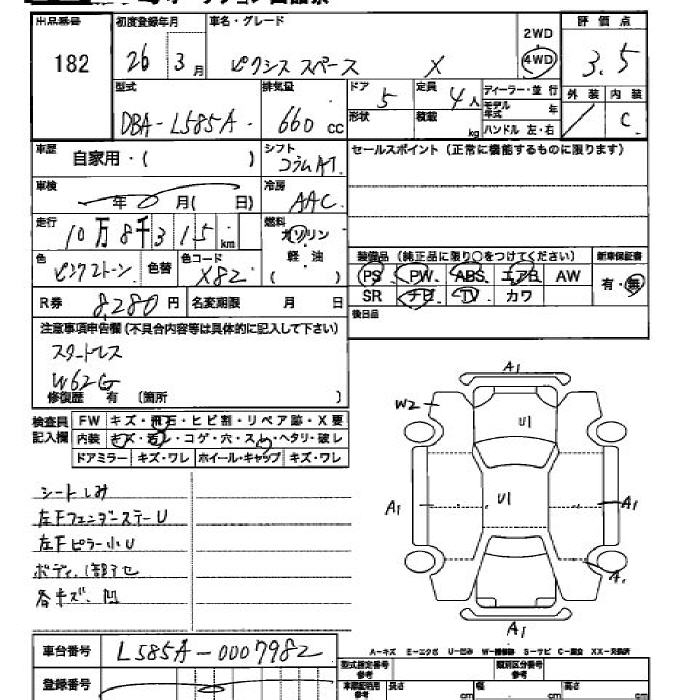 出品番号 初度登録年月 車名・グレード 評価点
182 26 3月 ピクシス スペース X 2WD 4WD 3.5
型式 排気量 ドア 5 定員 4人 ディーラー・並行 外装 内装
DBA-L585A 660cc 形状 積載 kg モデル年式 年 ハンドル 左・右 / C
車歴 自家用・( ) シフト コラムAT セールスポイント(正常に機能するものに限ります)
車検 年 月( 日) 冷房 AAC
走行 10万8千315km 燃料 ガソリン
軽・油
( )
色 ピンクストーン 色替 色コード X82
装備品(純正品に限り○をつけてください) 新車保証書
PS PW ABS エアB AW 有・無
SR ナビ TV カワ
R券 8,280円 名変期限 月 日 後日品
注意事項申告欄(不具合内容等は具体的に記入して下さい)
スタッドレス
W62G
修復歴 有 (箇所 )
検査員記入欄 FW キズ・飛石・ヒビ割・リペア跡・X要
内装 キズ・若レ・コゲ・穴・スレ・ヘタリ・破レ
ドアミラー キズ・ワレ ホイール・キャップ キズ・ワレ
シートしみ
左Fフェンダーステー U
左Fピラー小U
各キズ、凹
A1
W2
U1
U1
A1
A1
A1
A1
車台番号 L585A-0007982
A-キズ E-エクボ U-凹み W-補修跡 S-サビ C-腐食 XX-交換済
登録番号
型式指定番号 参考 類別区分番号 参考
長さ cm 幅 cm 高さ cm